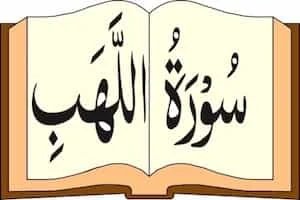 سُوْرَةُ اللَّهَبِ